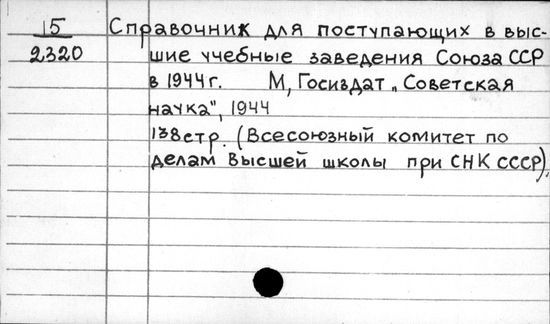 15 Справочник для поступающих в выс-
2320 шие учебные заведения Союза ССР
в 1944 г. М, Госиздат „Советская
наука", 1944
138 стр. (Всесоюзный комитет по
делам высшей школы при СНК СССР).